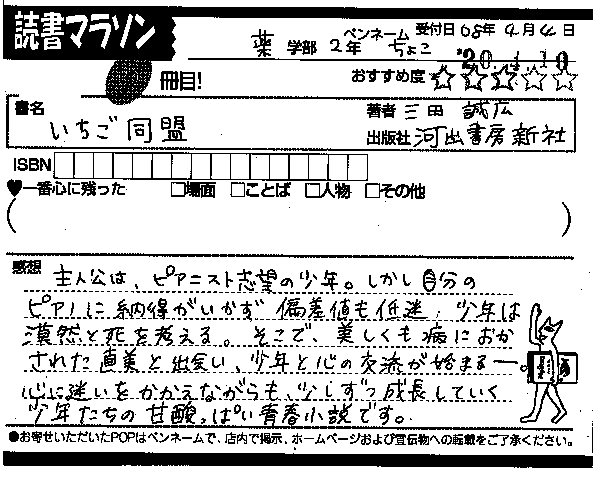 読書マラソン
薬 学部 2年 ペンネーム ちょこ 受付日 08年 4月 4日
'20. 4. 10
冊目! おすすめ度 ☆☆☆☆☆
書名 いちご同盟
著者 三田 誠広
出版社 河出書房新社
ISBN
♥一番心に残った □場面 □ことば □人物 □その他
( )
感想 主人公は、ピアニスト志望の少年。しかし自分の
ピアノに納得がいかず 偏差値も低迷、少年は
漠然と死を考える。そこで、美しくも病におか
された直美と出会い、少年と心の交流が始まる―。
心に迷いをかかえながらも、少しずつ成長していく
少年たちの甘酸っぱい青春小説です。
●お寄せいただいたPOPはペンネームで、店内で掲示、ホームページおよび宣伝物への転載をご了承ください。